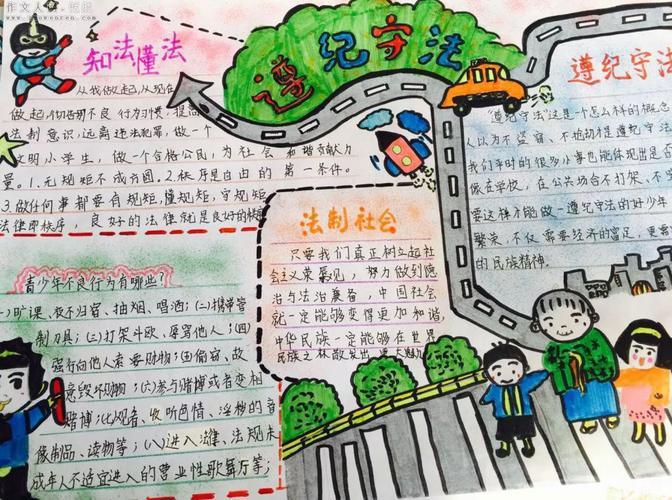 遵纪守法
知法懂法
从我做起,从现在
做起,彻底告别不良行为习惯,提高
法制意识,远离违法犯罪,做一个
文明小学生,做一个合格公民,为社会和谐贡献力
量。1.无规矩不成方圆。2.秩序是自由的第一条件。
3.做任何事都要有规矩,懂规矩,守规矩
法律即秩序,良好的法律就是良好的秩
青少年不良行为有哪些?
(一)旷课、夜不归宿、抽烟、喝酒;(二)携带管
制刀具;(三)打架斗殴、辱骂他人;(四)
强行向他人索要财物;(五)偷窃、故
意毁坏财物;(六)参与赌博或者变相
赌博;(七)观看、收听色情、淫秽的音
像制品、读物等;(八)进入法律、法规未
成年人不适宜进入的营业性歌舞厅等;
法制社会
只要我们真正树立起社
会主义荣辱观,努力做到德
治与法治兼备,中国社会
就一定能够变得更加和谐,
中华民族一定能够在世界
民族之林
遵纪守法
遵纪守法"这是一个怎么样的概念
人以为不盗窃、不抢劫才是遵纪守法
我们平时的很多小事也能体现出是否
像在学校,在公共场合不打架、不骂
要这样才能做一遵纪守法的好少年
繁荣,不仅需要经济的富足,更需
的民族精神.